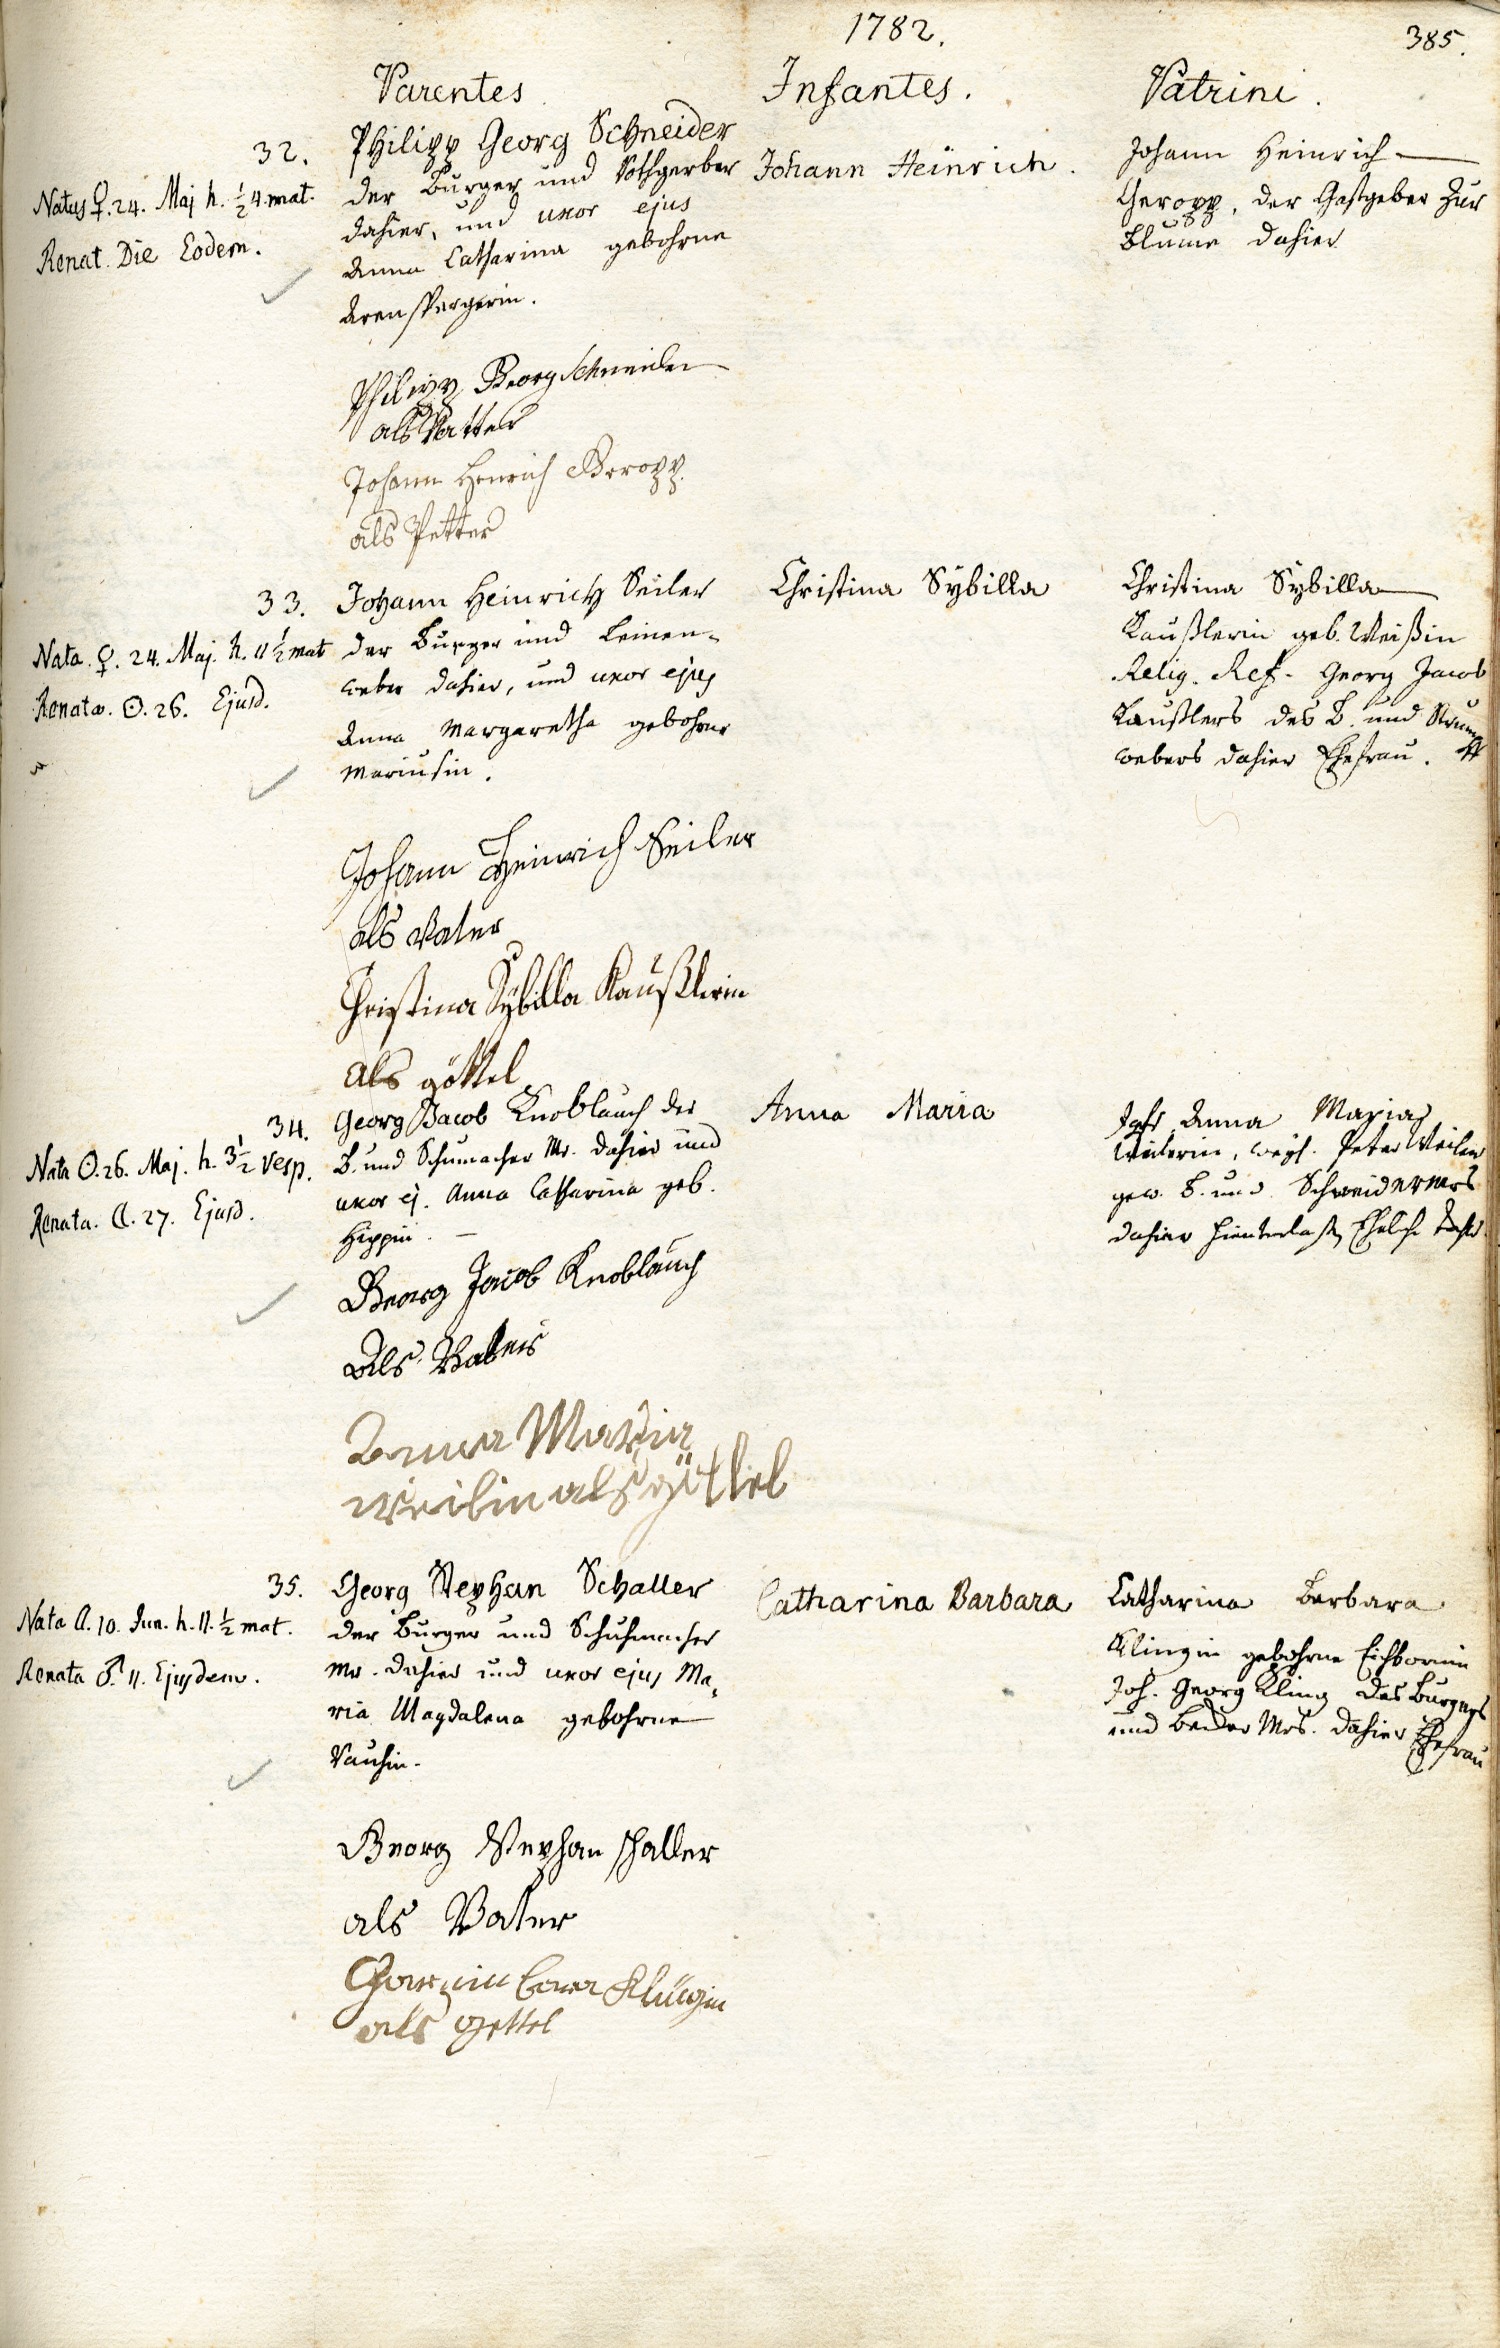 1782.
385.
Parentes
Infantes.
Patrini.
32.
Natus ♀. 24. Maj h. ½ 4. mat.
Renat. Die Eodem.
Philipp Georg Schneider
der Burger und Rothgerber
dahier, und uxor ejus
Anna Catharina gebohrne
Arenspergerin.
Johann Heinrich.
Johann Heinrich
Geropp, der Gastgeber zur
Blume dahier
Philipp Georg Schneider
als Vatter
Johann Henrich Geropp.
als Petter
33.
Nata. ♀. 24. Maj. h. 11 ½ mat
Renata. ☉. 26. Ejusd.
Johann Heinrich Seiler
der Burger und Leinen-
weber dahier, und uxor ejus
Anna Margaretha gebohrne
Mariusin.
Christina Sybilla
Christina Sybilla
Kaußlerin geb. Weißin
Relig. Ref. Georg Jacob
Kaußlers des B. und Strumpf
webers dahier Ehefrau.
Johann Heinrich Seiler
als Vater
Christina Sybilla Kaußlerin
als göttel
34.
Nata ☉. 26. Maj. h. 3 ½ Vesp.
Renata. ☾. 27. Ejusd.
Georg Jacob Knoblauch der
B. und Schumacher Mr. dahier und
uxor ej. Anna Catharina geb.
Hippin.
Anna Maria
Jgfr Anna Maria
Weilerin, weyl. Peter Weiler
gew. B. und Schneider Mrs
dahier hinterlaß. Ehel.
Georg Jacob Knoblauch
Als Vater
Anna Maria
Weilin als göttel
35.
Nata ☾. 10. Jun. h. 11. ½ mat.
Renata ♂. 11. Ejusdem.
Georg Stephan Schaller
der Burger und Schuhmacher
Mr. dahier und uxor ejus Ma-
ria Magdalena gebohrne
Vausin.
Catharina Barbara
Catharina Barbara
Klingin gebohrne Eichbornin
Joh. Georg Kling des Burgers
und Mrs. dahier Ehefrau
Georg Stephan schaller
als Vater
Klingin
als gettel